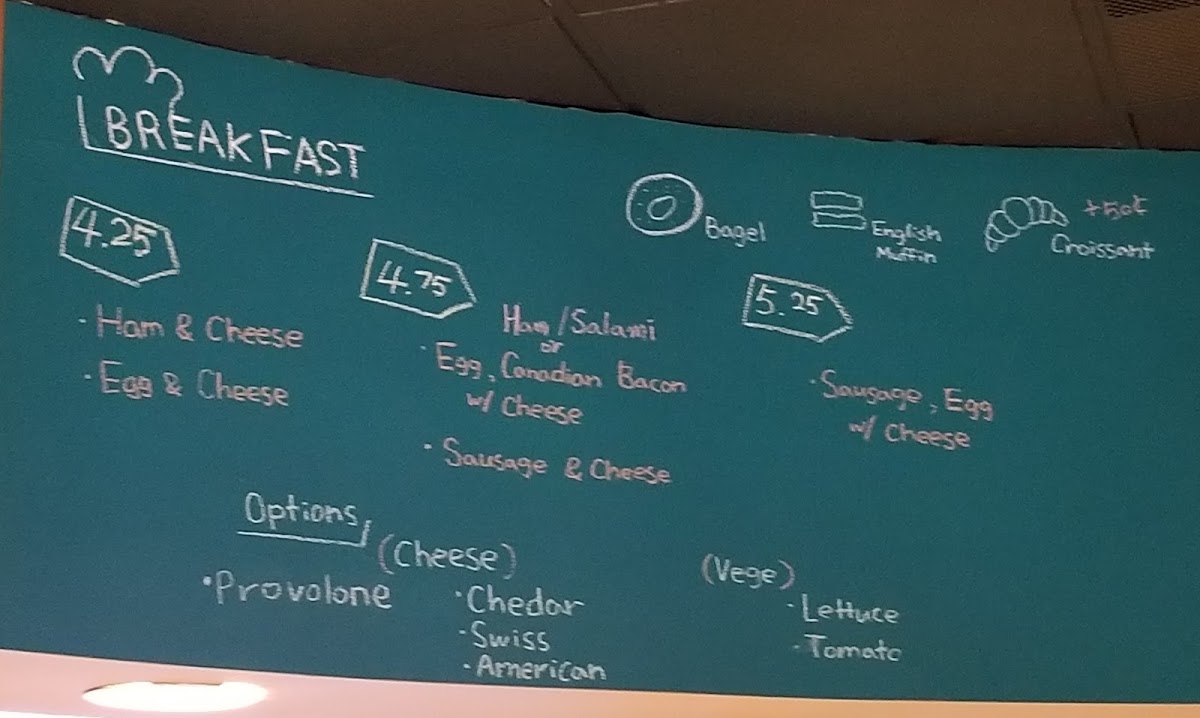 BREAKFAST
Bagel
English
Muffin
+50¢
Croissant
4.25
· Ham & Cheese
· Egg & Cheese
4.75
Ham/Salami
or
· Egg, Canadian Bacon
w/ Cheese
· Sausage & Cheese
5.25
· Sausage, Egg
w/ Cheese
Options
(Cheese)
· Provolone
· Chedar
· Swiss
· American
(Vege)
· Lettuce
· Tomato